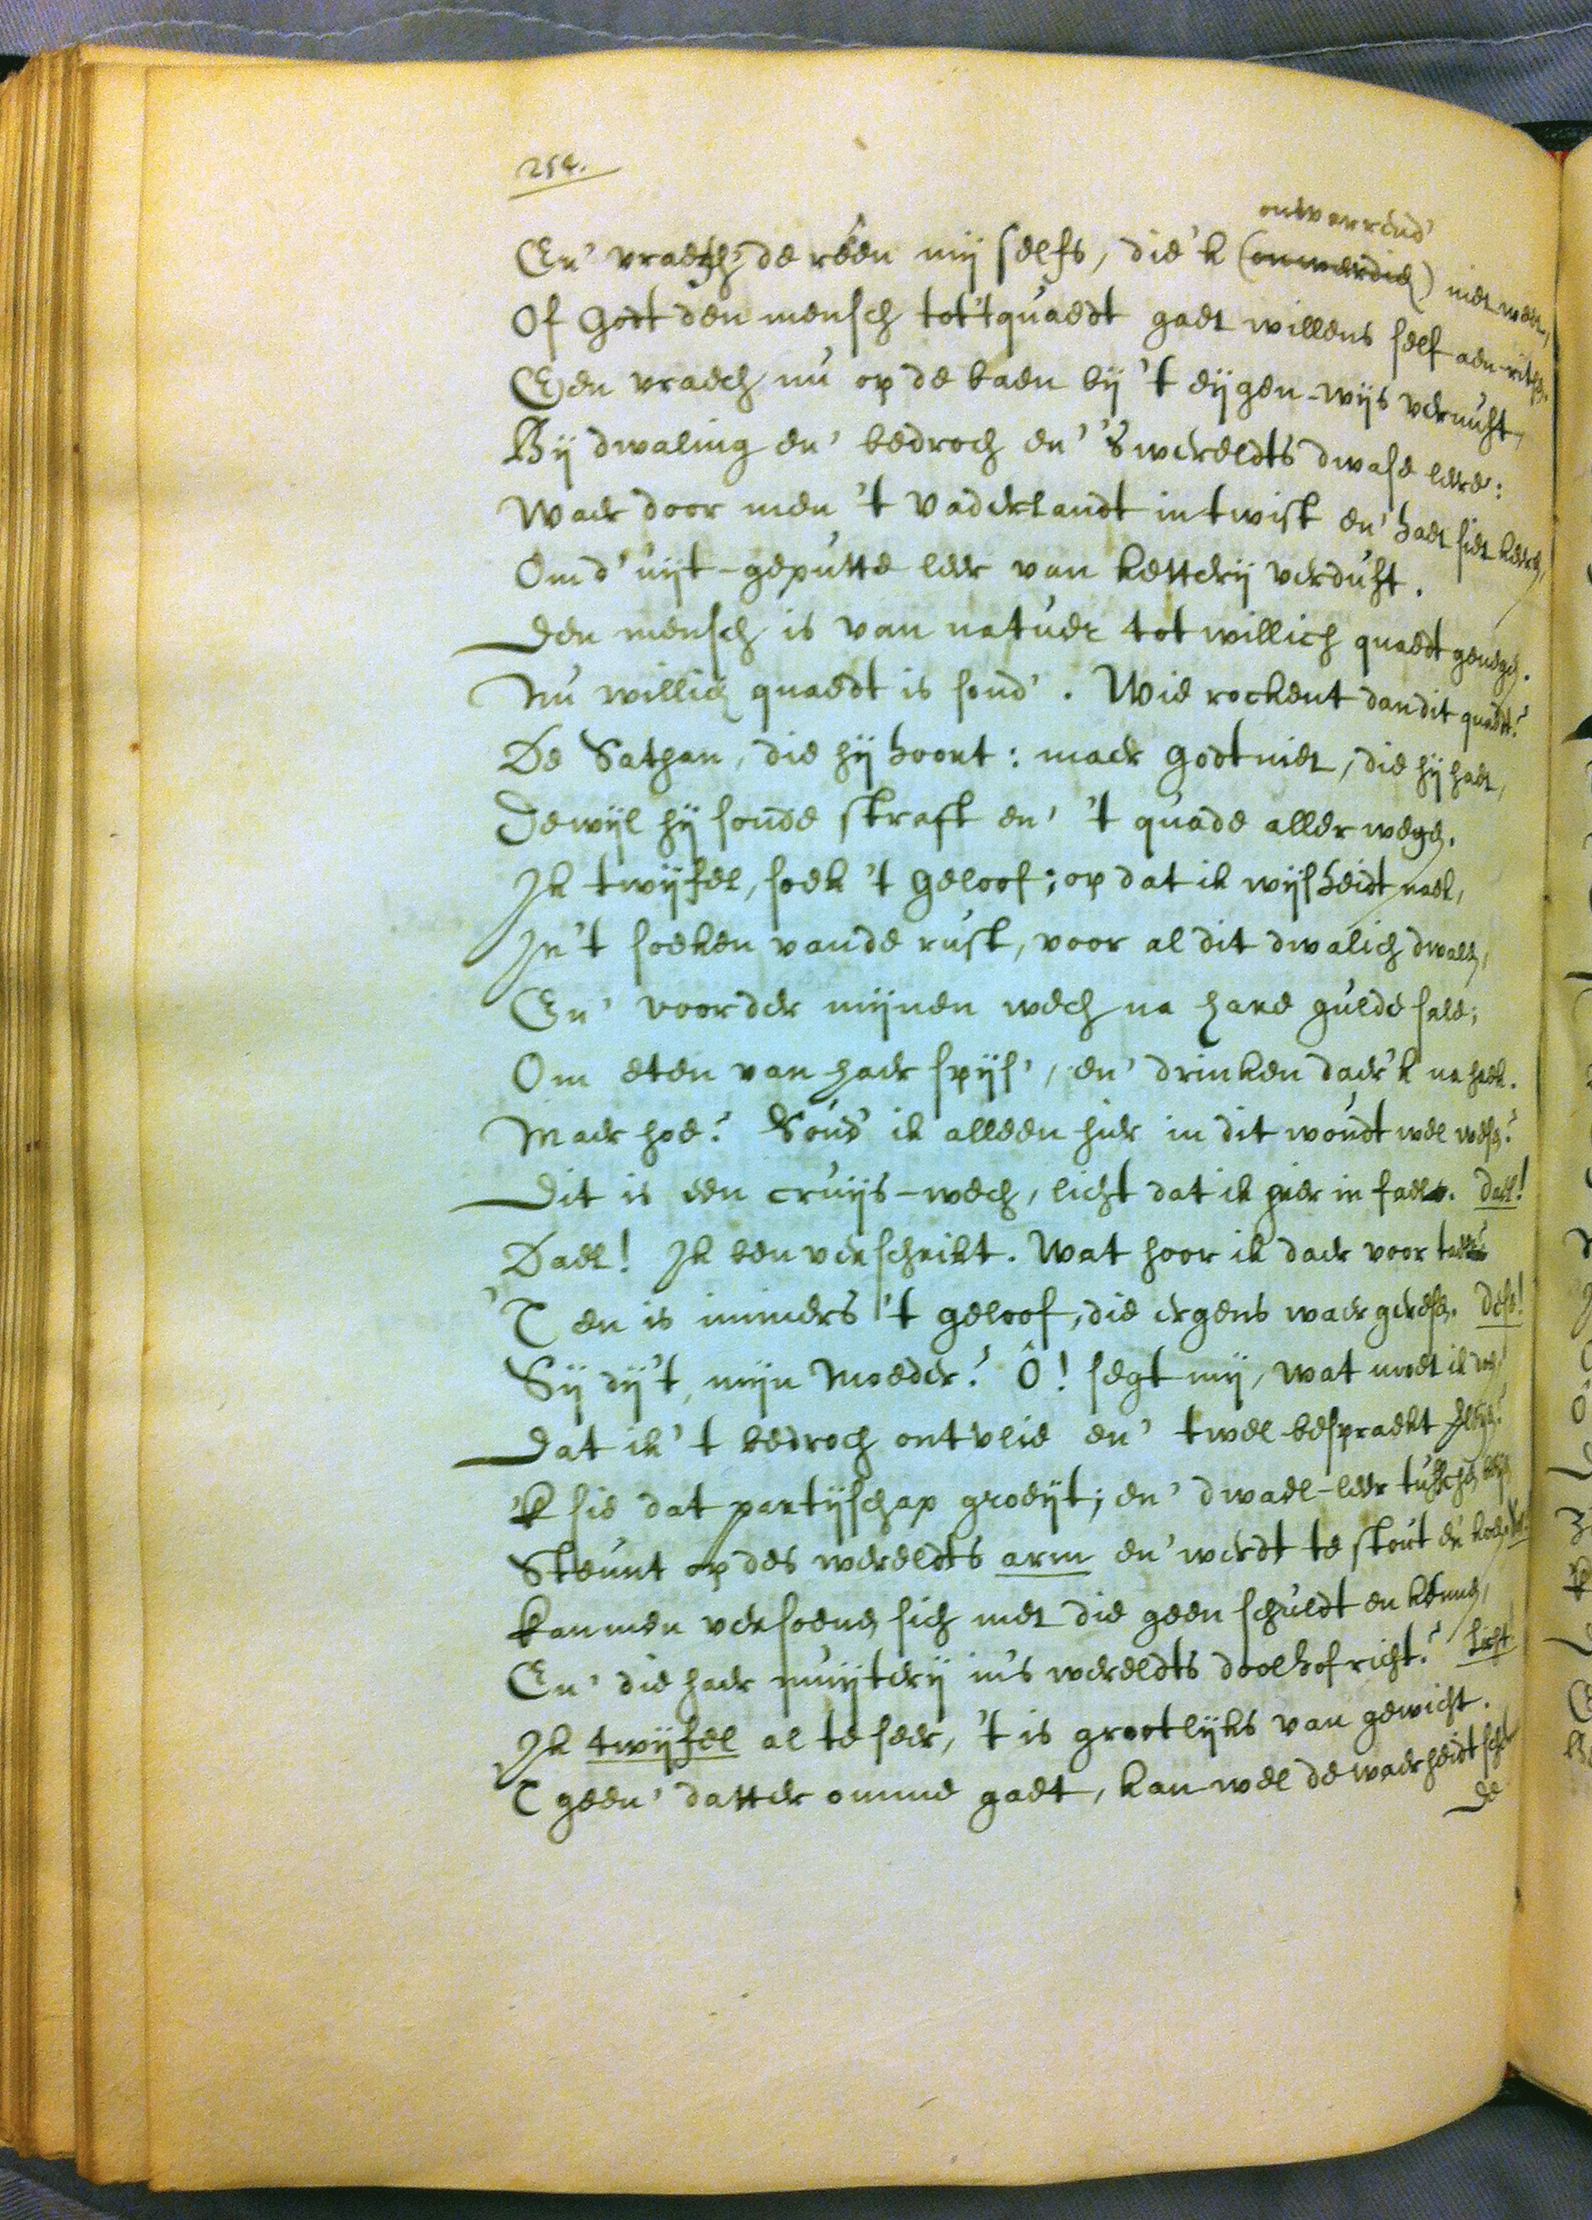 254.
onverrend'
En' vraech de réén mij selfs, die 'k (onwerdie) niet weet,
Of Godt den mensch tot 't quaedt gaet willens self aen-
Een vraech nu op de baen bij 't eijgen-wijs vernuft,
Bij dwaling en' bedroch en' 's wereldts dwase leere:
Waer door men 't Vaderlandt in twist en' haet siet keeren,
Om d' uijt-geputte leer van ketterij verduft.
Den mensch is van natuer tot willich quaedt genegen.
Nu willich quaedt is sond'. Wie rockent dan dit quaedt?
De Sathan, die hij hoort: maer Godt niet, die hij haet,
Dewijl hij sonde straft en' 't quade allerwegen.
Ik twijfel, soek 't Geloof; op dat ik wijsheidt raek,
In 't soeken vande rust, voor al dit dwalich dwalen,
En' voorder mijnen wech na hare gulde sale;
Om eten van haer spijs', en' drinken daer 'k na haek.
Maer hoe? Soud' ik alleen hier in dit woudt wel wesen?
Dit is een cruijs-wech, licht dat ik hier in fael. dael!
Dael! Ik ben verschrikt. Wat hoor ik daer voor tael?
'T en is immers 't geloof, die ergens waer geresen. Dese!
Sij dij't, mijn Moeder? Ô! segt mij, wat moet ik doen,
Dat ik 't bedroch ontvlie en' twel bespraekt
'k sie dat partijschap groeijt; en' dwael-leer tusschen
Steunt op des wereldts arm en' werdt te stout en koen.
Kan men versoenen sich met die geen schuldt en kennen,
En' die haer muijterij in's wereldts doolhof richt? licht
Ik twijfel al te seer, 't is grootlijks van gewicht.
'T geen' datter omme gaet, kan wel de waerheidt
De